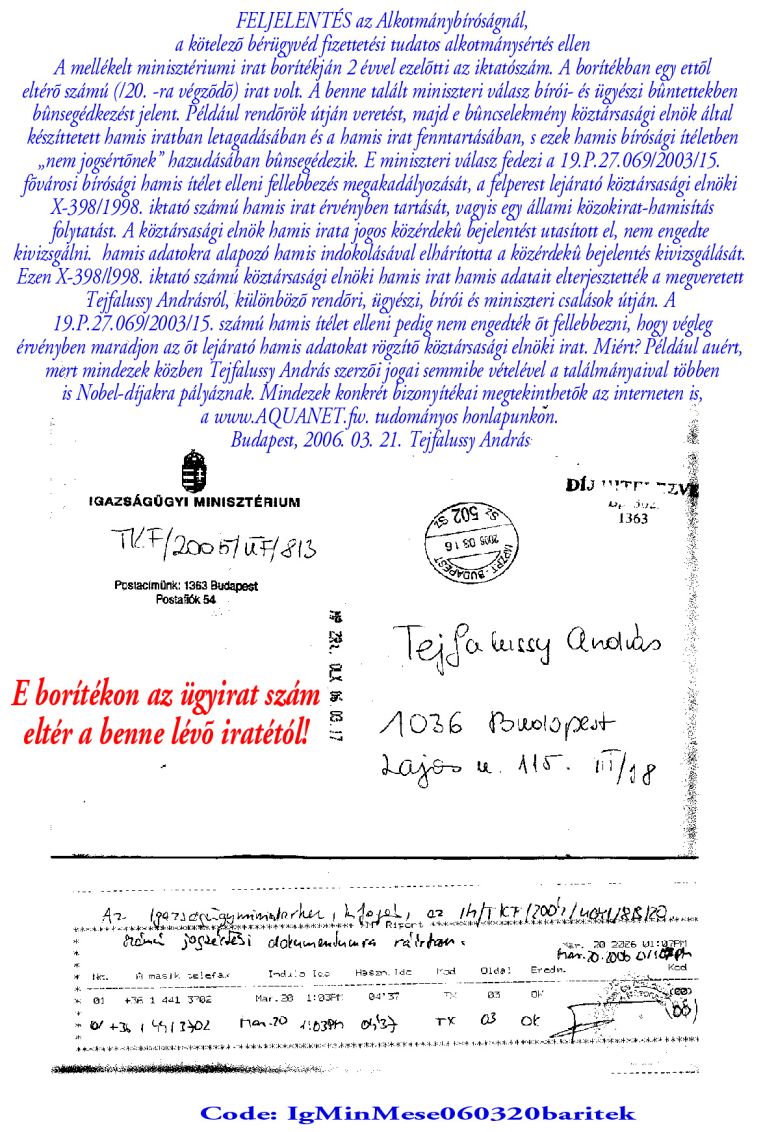 FELJELENTÉS az Alkotmánybíróságnál,
a kötelezõ bérügyvéd fizettetési tudatos alkotmánysértés ellen
A mellékelt minisztériumi irat borítékján 2 évvel ezelõtti az iktatószám. A borítékban egy ettõl
eltérõ számú (/20. -ra végzõdõ) irat volt. A benne talált miniszteri válasz bírói- és ügyészi bûntettekben
bûnsegédkezést jelent. Például rendõrök útján veretést, majd e bûncselekmény köztársasági elnök által
készíttetett hamis iratban letagadásában és a hamis irat fenntartásában, s ezek hamis bírósági ítéletben
„nem jogsértõnek” hazudásában bûnsegédezik. E miniszteri válasz fedezi a 19.P.27.069/2003/15.
fõvárosi bírósági hamis ítélet elleni fellebbezés megakadályozását, a felperest lejárató köztársasági elnöki
X-398/1998. iktató számú hamis irat érvényben tartását, vagyis egy állami közokirat-hamisítás
folytatást. A köztársasági elnök hamis irata jogos közérdekû bejelentést utasított el, nem engedte
kivizsgálni. hamis adatokra alapozó hamis indokolásával elhárította a közérdekû bejelentés kivizsgálását.
Ezen X-398/l998. iktató számú köztársasági elnöki hamis irat hamis adatait elterjesztették a megveretett
Tejfalussy Andrásról, különbözõ rendõri, ügyészi, bírói és miniszteri csalások útján. A
19.P.27.069/2003/15. számú hamis ítélet elleni pedig nem engedték õt fellebbezni, hogy végleg
érvényben maradjon az õt lejárató hamis adatokat rögzítõ köztársasági elnöki irat. Miért? Például auért,
mert mindezek közben Tejfalussy András szerzõi jogai semmibe vételével a találmányaival többen
is Nobel-díjakra pályáznak. Mindezek konkrét bizonyítékai megtekinthetõk az interneten is,
a www.AQUANET.fw. tudományos honlapunkon.
Budapest, 2006. 03. 21. Tejfalussy András
IGAZSÁGÜGYI MINISZTÉRIUM
TKF/2005/ÜF/813
Postacímünk: 1363 Budapest
Postafiók 54
DÍJ
1363
Sz 502 Sz
2006 03 16
MPZRT - BUDAPEST
MP ZRt. OLK 06 03. 17
Tejfalussy András
1036 Budapest
Lajos u. 115. III/18
E borítékon az ügyirat szám
eltér a benne lévõ iratétól!
Az Igazságügyminiszternek,
Riport
számú jogsértési dokumentumra
Mar. 20 2006 01:07PM
Mar.20.2006 01:07PM
No. A masik telefax Indulo Ido Haszn.Ido Mod Oldal Eredm. Kod
01 +36 1 441 3702 Mar.20 1:03PM 04'37 TX 03 OK
01 +36 1 441 3702 Mar.20 1:03PM 04'37 TX 03 OK
Code: IgMinMese060320baritek